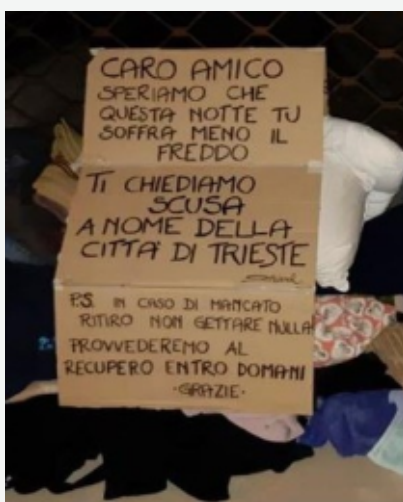 CARO AMICO
SPERIAMO CHE
QUESTA NOTTE TU
SOFFRA MENO IL
FREDDO
TI CHIEDIAMO
SCUSA
A NOME DELLA
CITTA' DI TRIESTE
P.S. IN CASO DI MANCATO
RITIRO NON GETTARE NULLA
PROVVEDEREMO AL
RECUPERO ENTRO DOMANI
-GRAZIE-